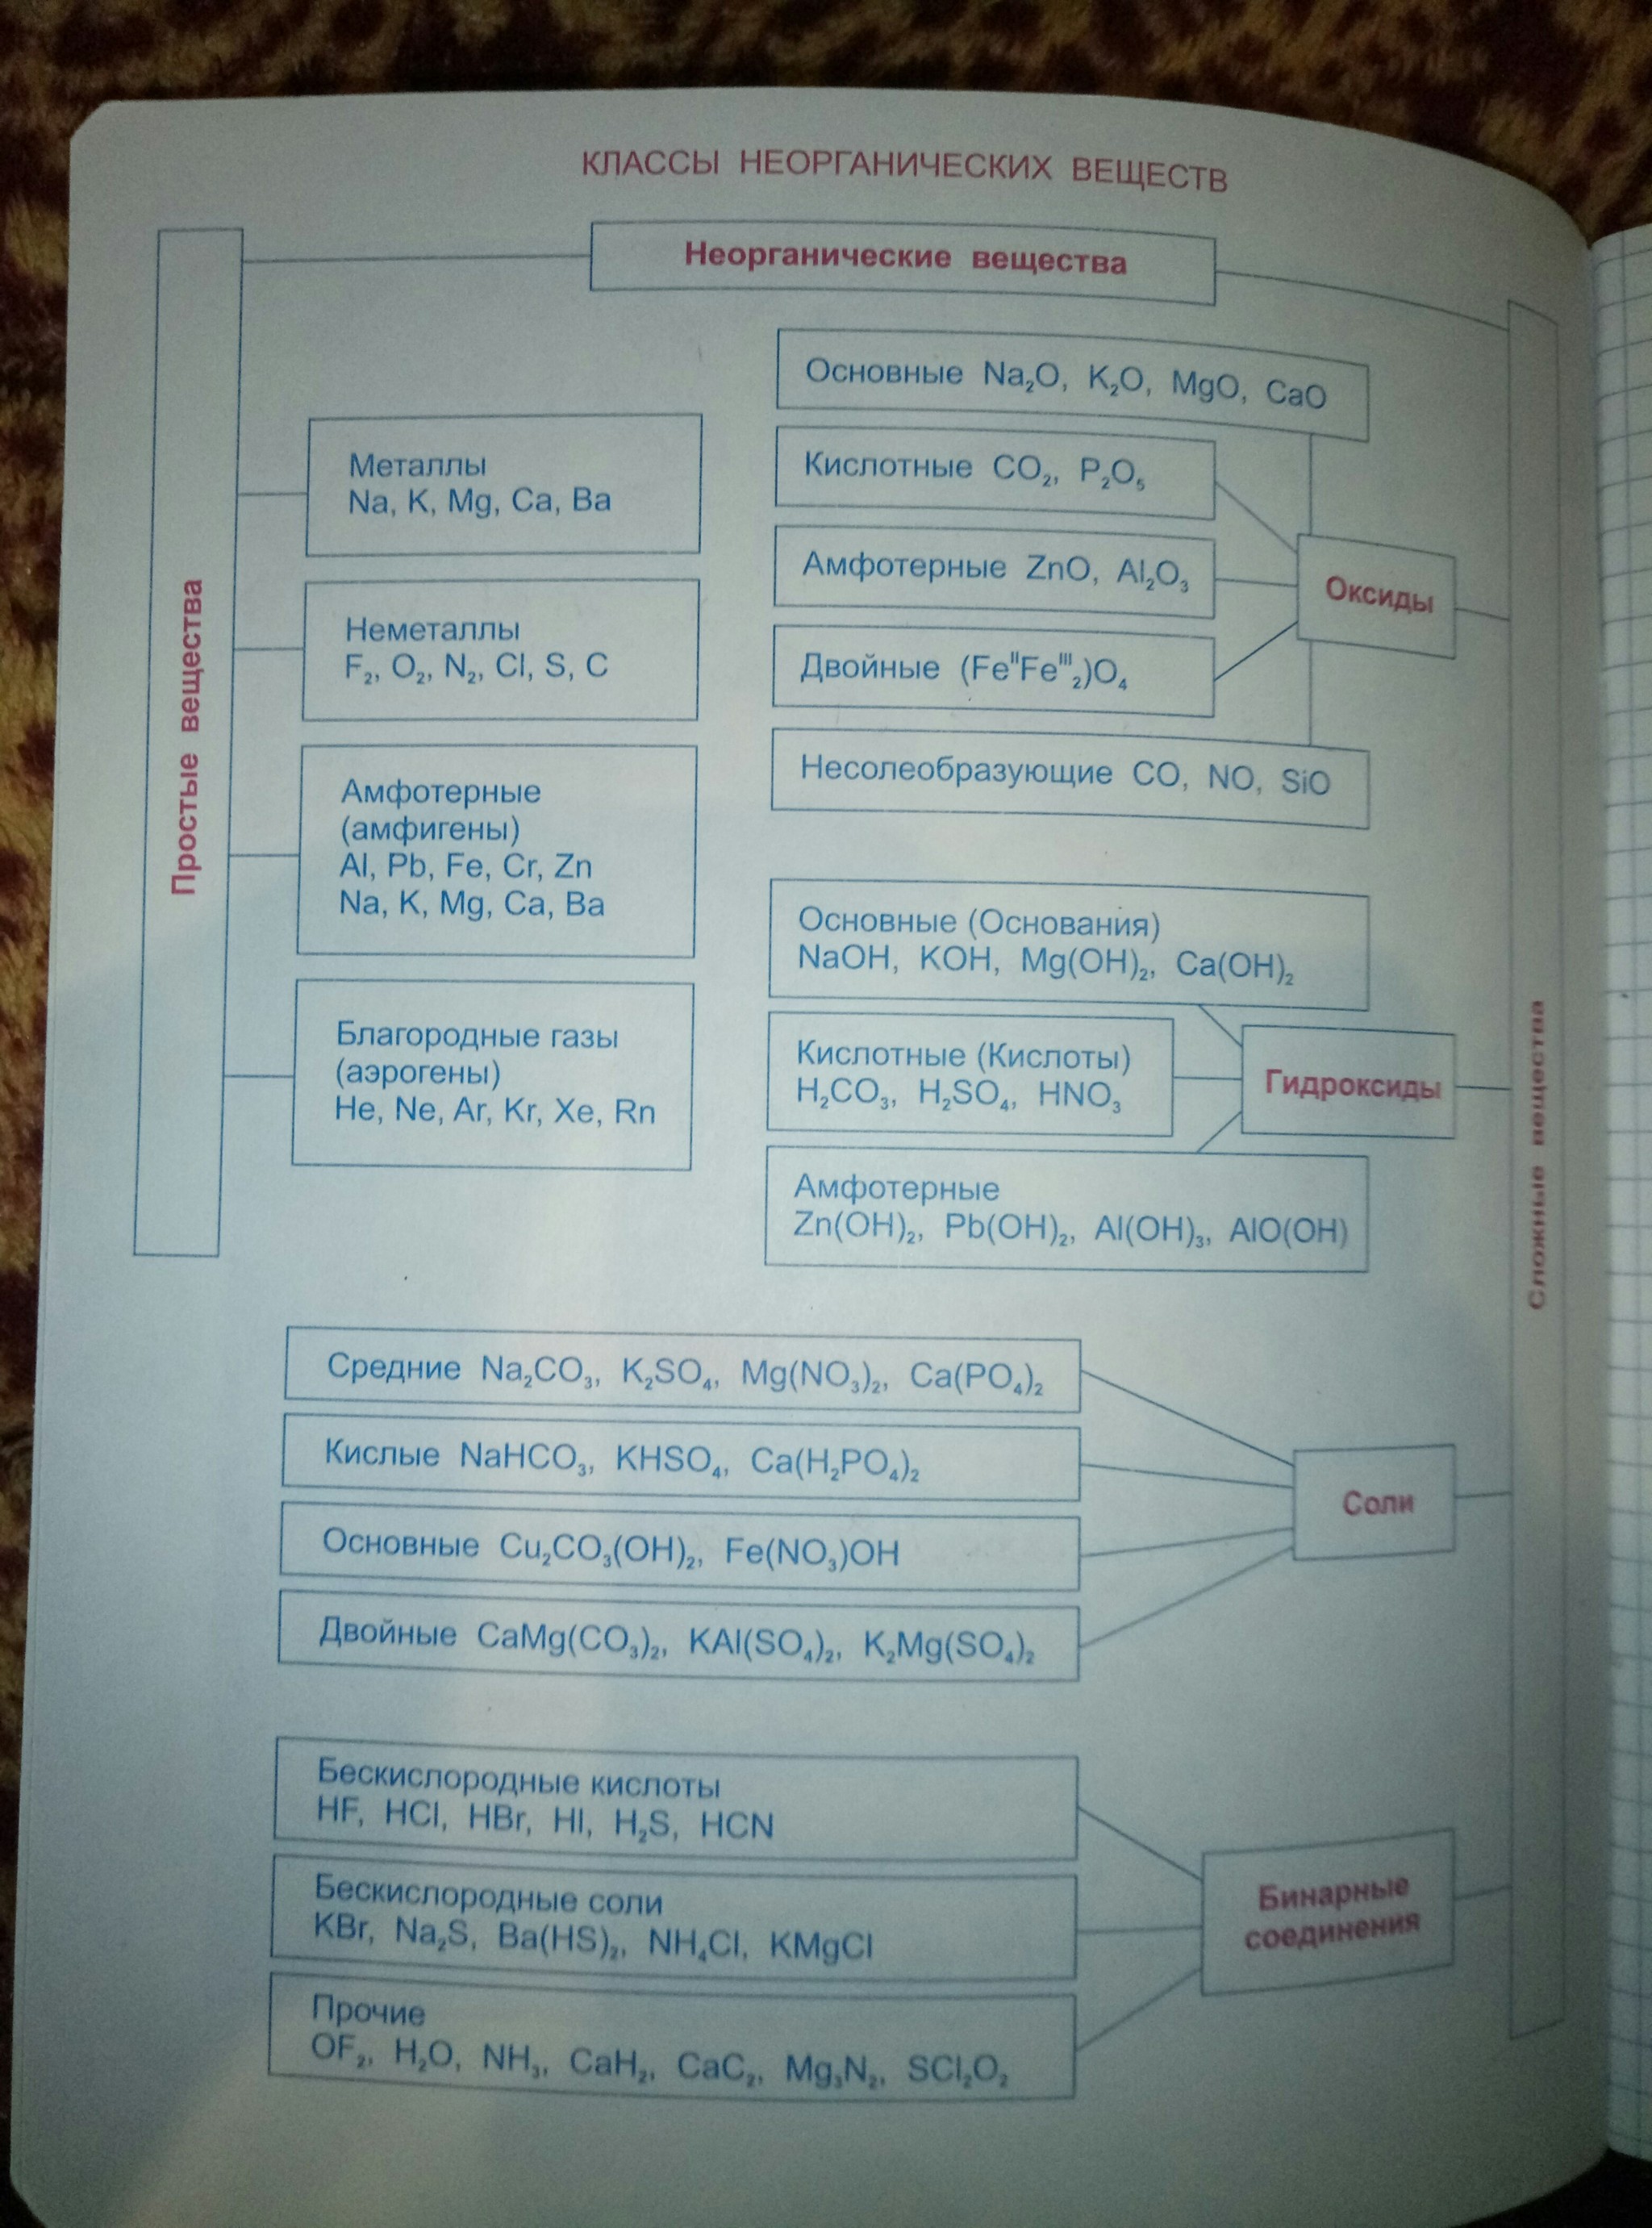 КЛАССЫ НЕОРГАНИЧЕСКИХ ВЕЩЕСТВ
Неорганические вещества
Простые вещества
Металлы
Na, K, Mg, Ca, Ba
Неметаллы
F₂, O₂, N₂, Cl, S, C
Амфотерные
(амфигены)
Al, Pb, Fe, Cr, Zn
Na, K, Mg, Ca, Ba
Благородные газы
(аэрогены)
He, Ne, Ar, Kr, Xe, Rn
Основные Na₂O, K₂O, MgO, CaO
Кислотные CO₂, P₂O₅
Амфотерные ZnO, Al₂O₃
Двойные (FeᴵᴵFeᴵᴵᴵ₂)O₄
Несолеобразующие CO, NO, SiO
Оксиды
Основные (Основания)
NaOH, KOH, Mg(OH)₂, Ca(OH)₂
Кислотные (Кислоты)
H₂CO₃, H₂SO₄, HNO₃
Амфотерные
Zn(OH)₂, Pb(OH)₂, Al(OH)₃, AlO(OH)
Гидроксиды
Сложные вещества
Средние Na₂CO₃, K₂SO₄, Mg(NO₃)₂, Ca(PO₄)₂
Кислые NaHCO₃, KHSO₄, Ca(H₂PO₄)₂
Основные Cu₂CO₃(OH)₂, Fe(NO₃)OH
Двойные CaMg(CO₃)₂, KAl(SO₄)₂, K₂Mg(SO₄)₂
Соли
Бескислородные кислоты
HF, HCl, HBr, HI, H₂S, HCN
Бескислородные соли
KBr, Na₂S, Ba(HS)₂, NH₄Cl, KMgCl
Прочие
OF₂, H₂O, NH₃, CaH₂, CaC₂, Mg₃N₂, SCl₂O₂
Бинарные
соединения